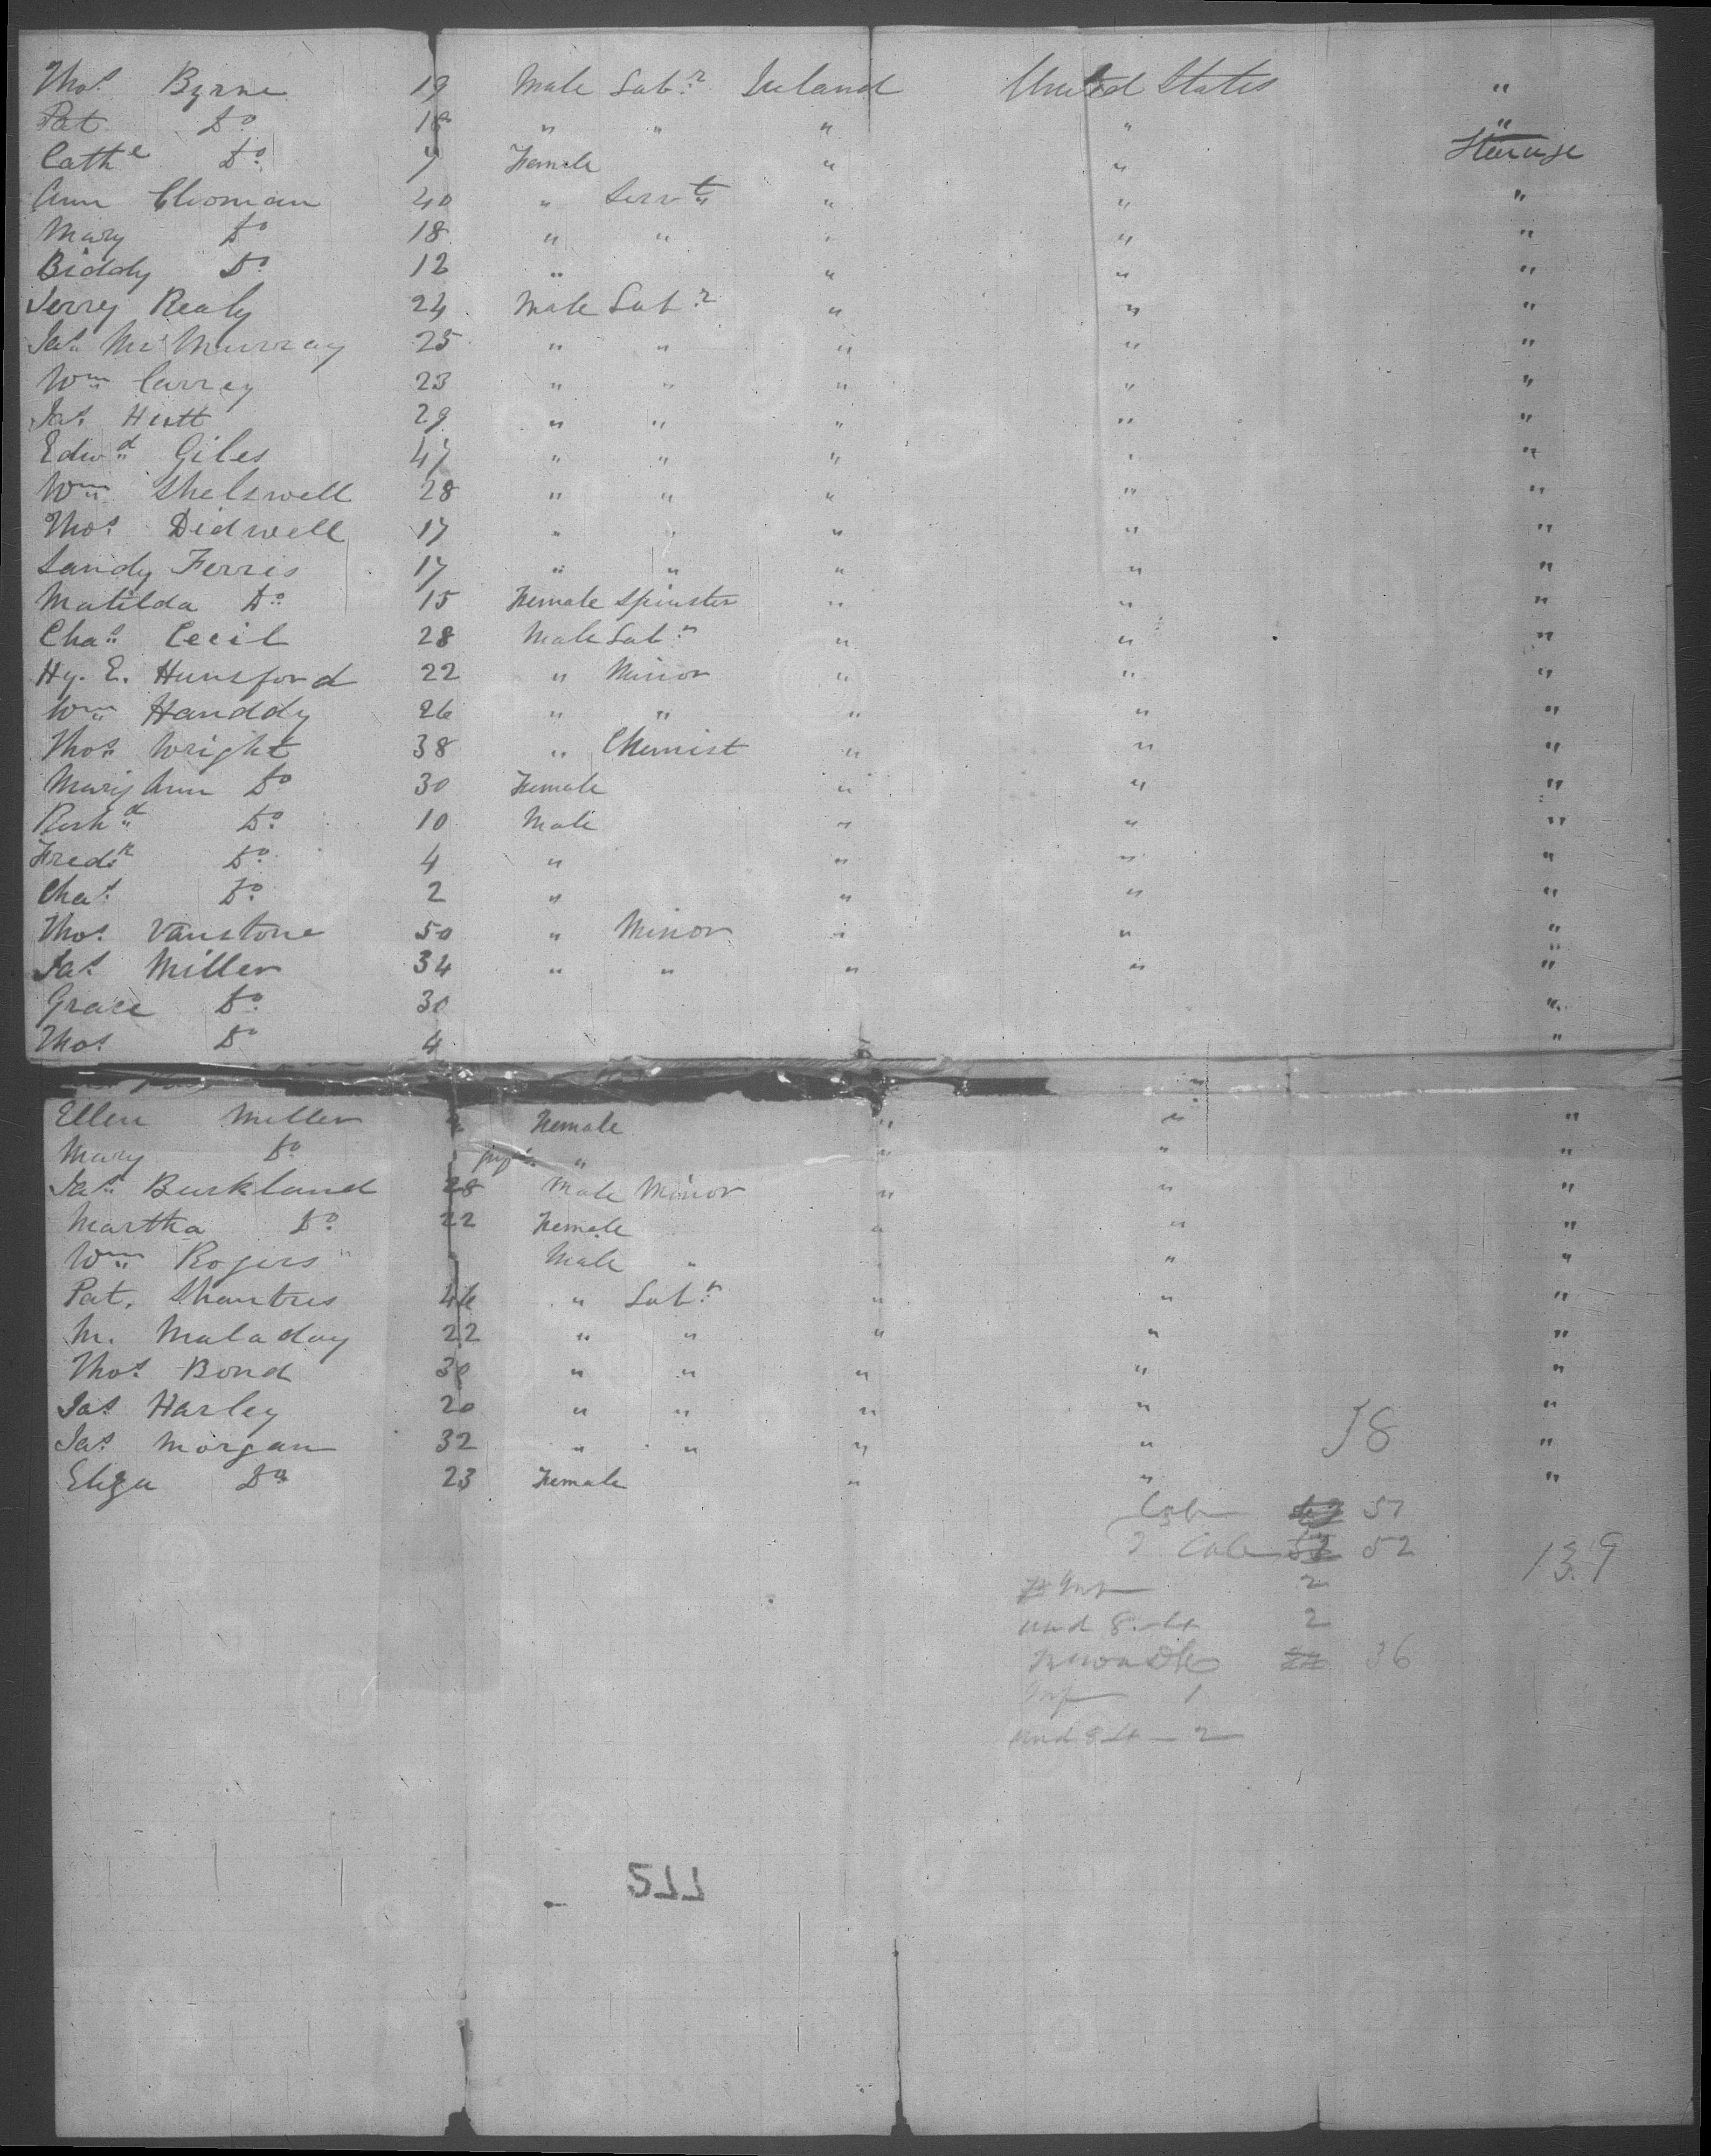 Thos Byrne 19 Male Labr Ireland United States "
Pat Do 18 " " " " "
Cathe Do 7 Female " " Steerage
Ann Cloonan 40 " Servt " " "
Mary Do 18 " " " " "
Biddy Do 12 " " " "
Jerry Realy 24 Male Labr " " "
Jas McMurray 25 " " " " "
Wm Carrey 23 " " " " "
Jas Hutt 29 " " " " "
Edwd Giles 47 " " " " "
Wm Shelswell 28 " " " " "
Thos Didwell 17 " " " " "
Sandy Ferris 17 " " " " "
Matilda Do 15 Female Spinster " " "
Chas Cecil 28 Male Labr " " "
Hy. E. Hunsford 22 " Minor " " "
Wm Handdy 26 " " " " "
Thos Wright 38 " Chemist " " "
Mary Ann Do 30 Female " " "
Richd Do 10 Male " " "
Fredk Do 4 " " " "
Chas Do 2 " " " "
Thos Vanstone 50 " Minor " " "
Jas Miller 34 " " " " "
Grace Do 30 "
Thos Do 4 "
Ellen Miller " Female " " "
Mary Do " " " "
Jas Buckland 28 Male Minor " " "
Martha Do 22 Female " " "
Wm Rogers " Male " " "
Pat. 46 " Labr " " "
M. Maladay 22 " " " " "
Thos Bond 30 " " " " "
Jas Harley 20 " " " " "
Jas Morgan 32 " " " " "
Eliza Do 23 Female " " "
51
52 139
Inf 2
und 8 2
36
Inf 1
und 8 — 2
511